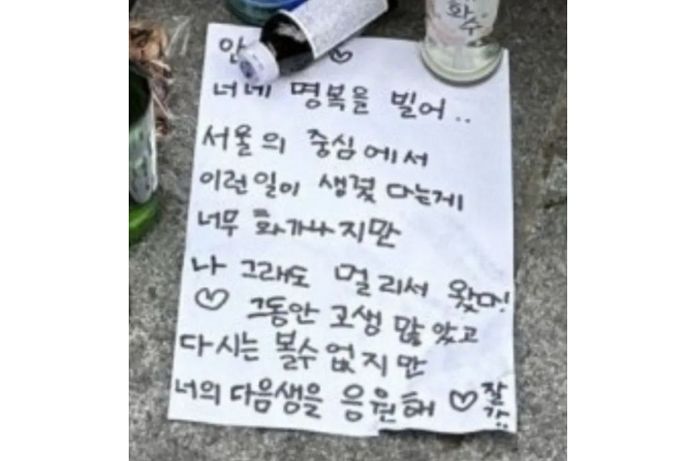 화수
안 ♡
너네 명복을 빌어..
서울의 중심에서
이런일이 생겼다는게
너무 화가나지만
나 그래도 멀리서 왔다!
♡ 그동안 고생 많았고
다시는 볼수 없지만
너의 다음생을 응원해 ♡ 잘가!!